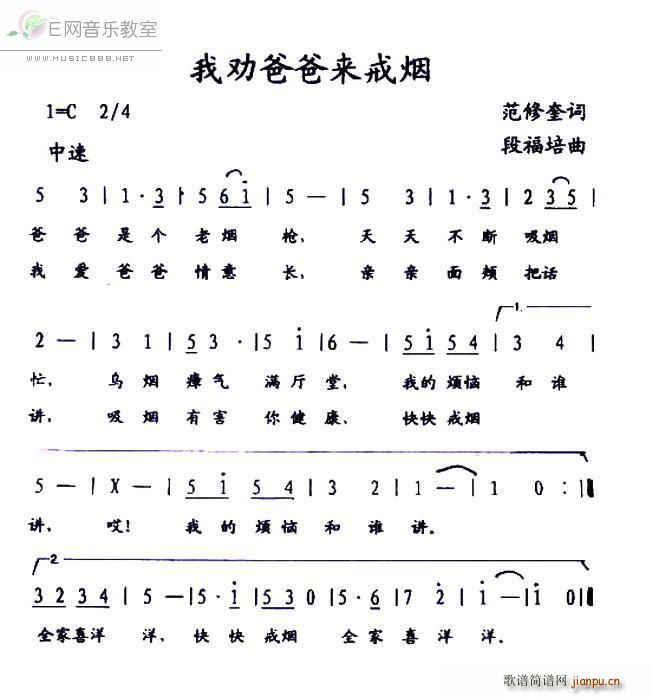 E网音乐教室
WWW.MUSIC888.NET
我劝爸爸来戒烟
1=C 2/4
范修奎词
中速
段福培曲
5 3 | 1· 3 | 5 6 i | 5 — | 5 3 | 1· 3 | 2 3 5 |
爸 爸 是 个 老 烟 枪, 天 天 不 断 吸烟
我 爱 爸 爸 情 意 长, 亲 亲 面 颊 把话
1.
2 — | 3 1 | 5 3 · | 5 i | 6 — | 5 i 5 4 | 3 4 |
忙, 乌 烟 瘴 气 满 厅 堂, 我的 烦恼 和 谁
讲, 吸 烟 有 害 你 健 康, 快快 戒烟
5 — | X — | 5 i 5 4 | 3 2 | 1 — | 1 0 :|
讲, 哎! 我 的 烦 恼 和 谁 讲。
2.
3 2 3 4 | 5 — | 5· i | 5 3 0 | 5· 6 | 7 2 | i — | i 0 |
全家喜洋 洋, 快 快 戒烟 全 家 喜 洋 洋.
歌谱简谱网
jianpu.cn